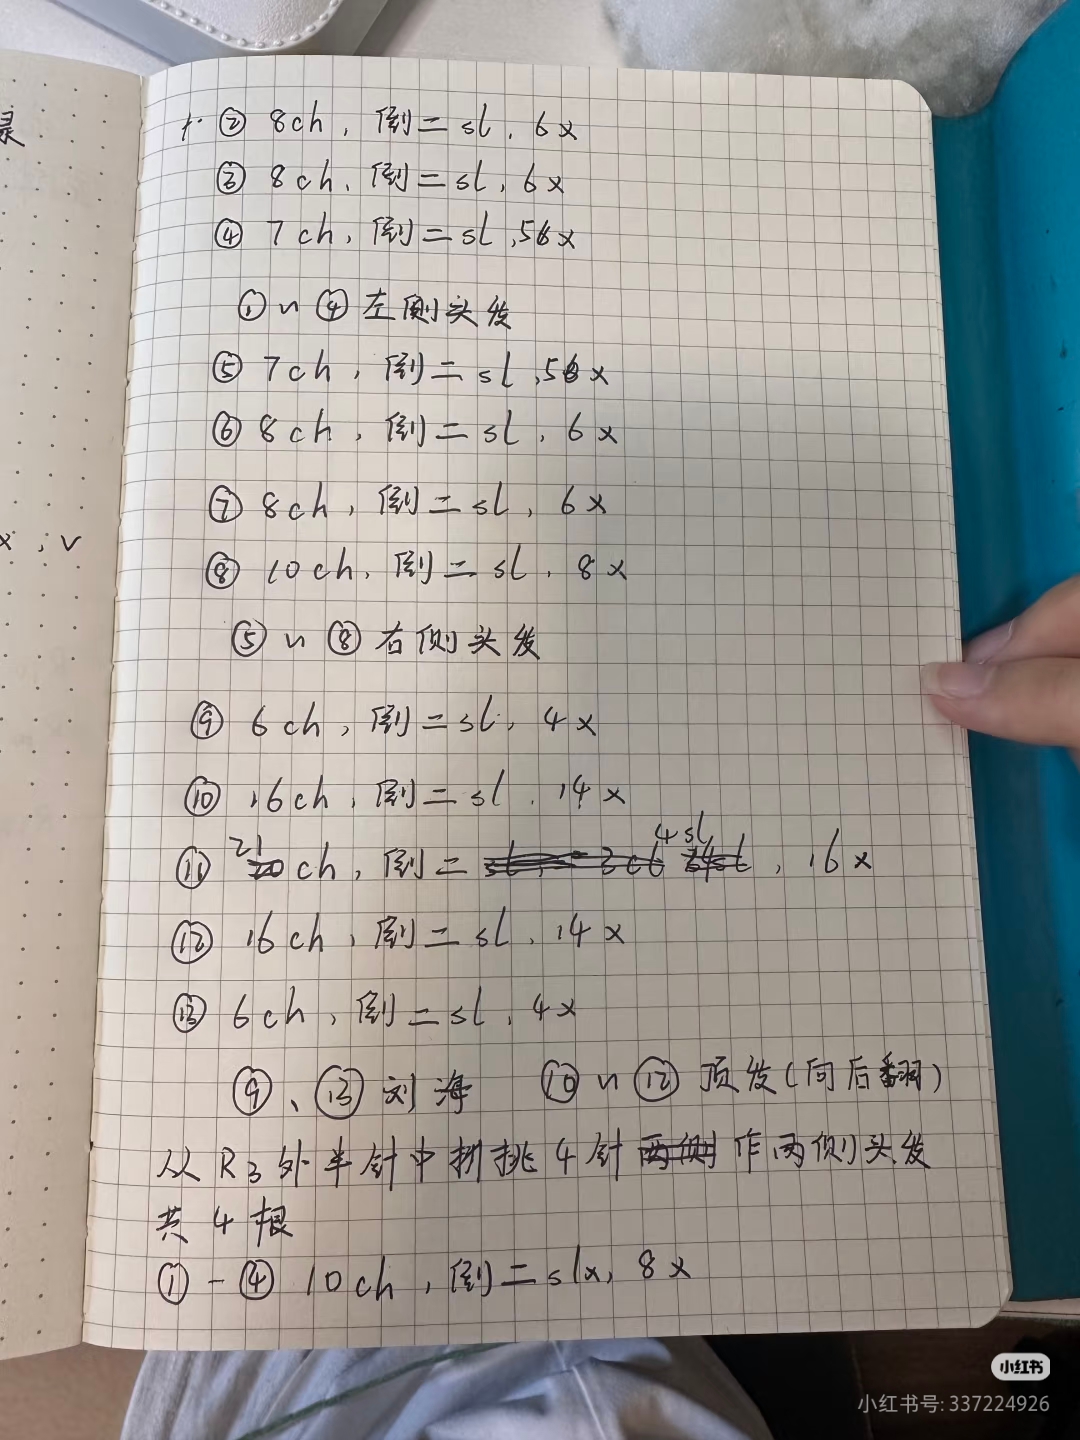 录
② 8ch, 倒二sl, 6x
③ 8ch, 倒二sl, 6x
④ 7ch, 倒二sl, 5x
①~④左侧头发
⑤ 7ch, 倒二sl, 5x
⑥ 8ch, 倒二sl, 6x
x, v
⑦ 8ch, 倒二sl, 6x
⑧ 10ch, 倒二sl, 8x
⑤~⑧右侧头发
⑨ 6ch, 倒二sl, 4x
⑩ 16ch, 倒二sl, 14x
⑪ 21ch, 倒二4sl, 16x
⑫ 16ch, 倒二sl, 14x
⑬ 6ch, 倒二sl, 4x
⑨、⑬刘海 ⑩~⑫顶发(向后翻)
从R3外半针中挑4针作两侧头发
共4根
①-④ 10ch, 倒二slx, 8x
小红书
小红书号: 337224926